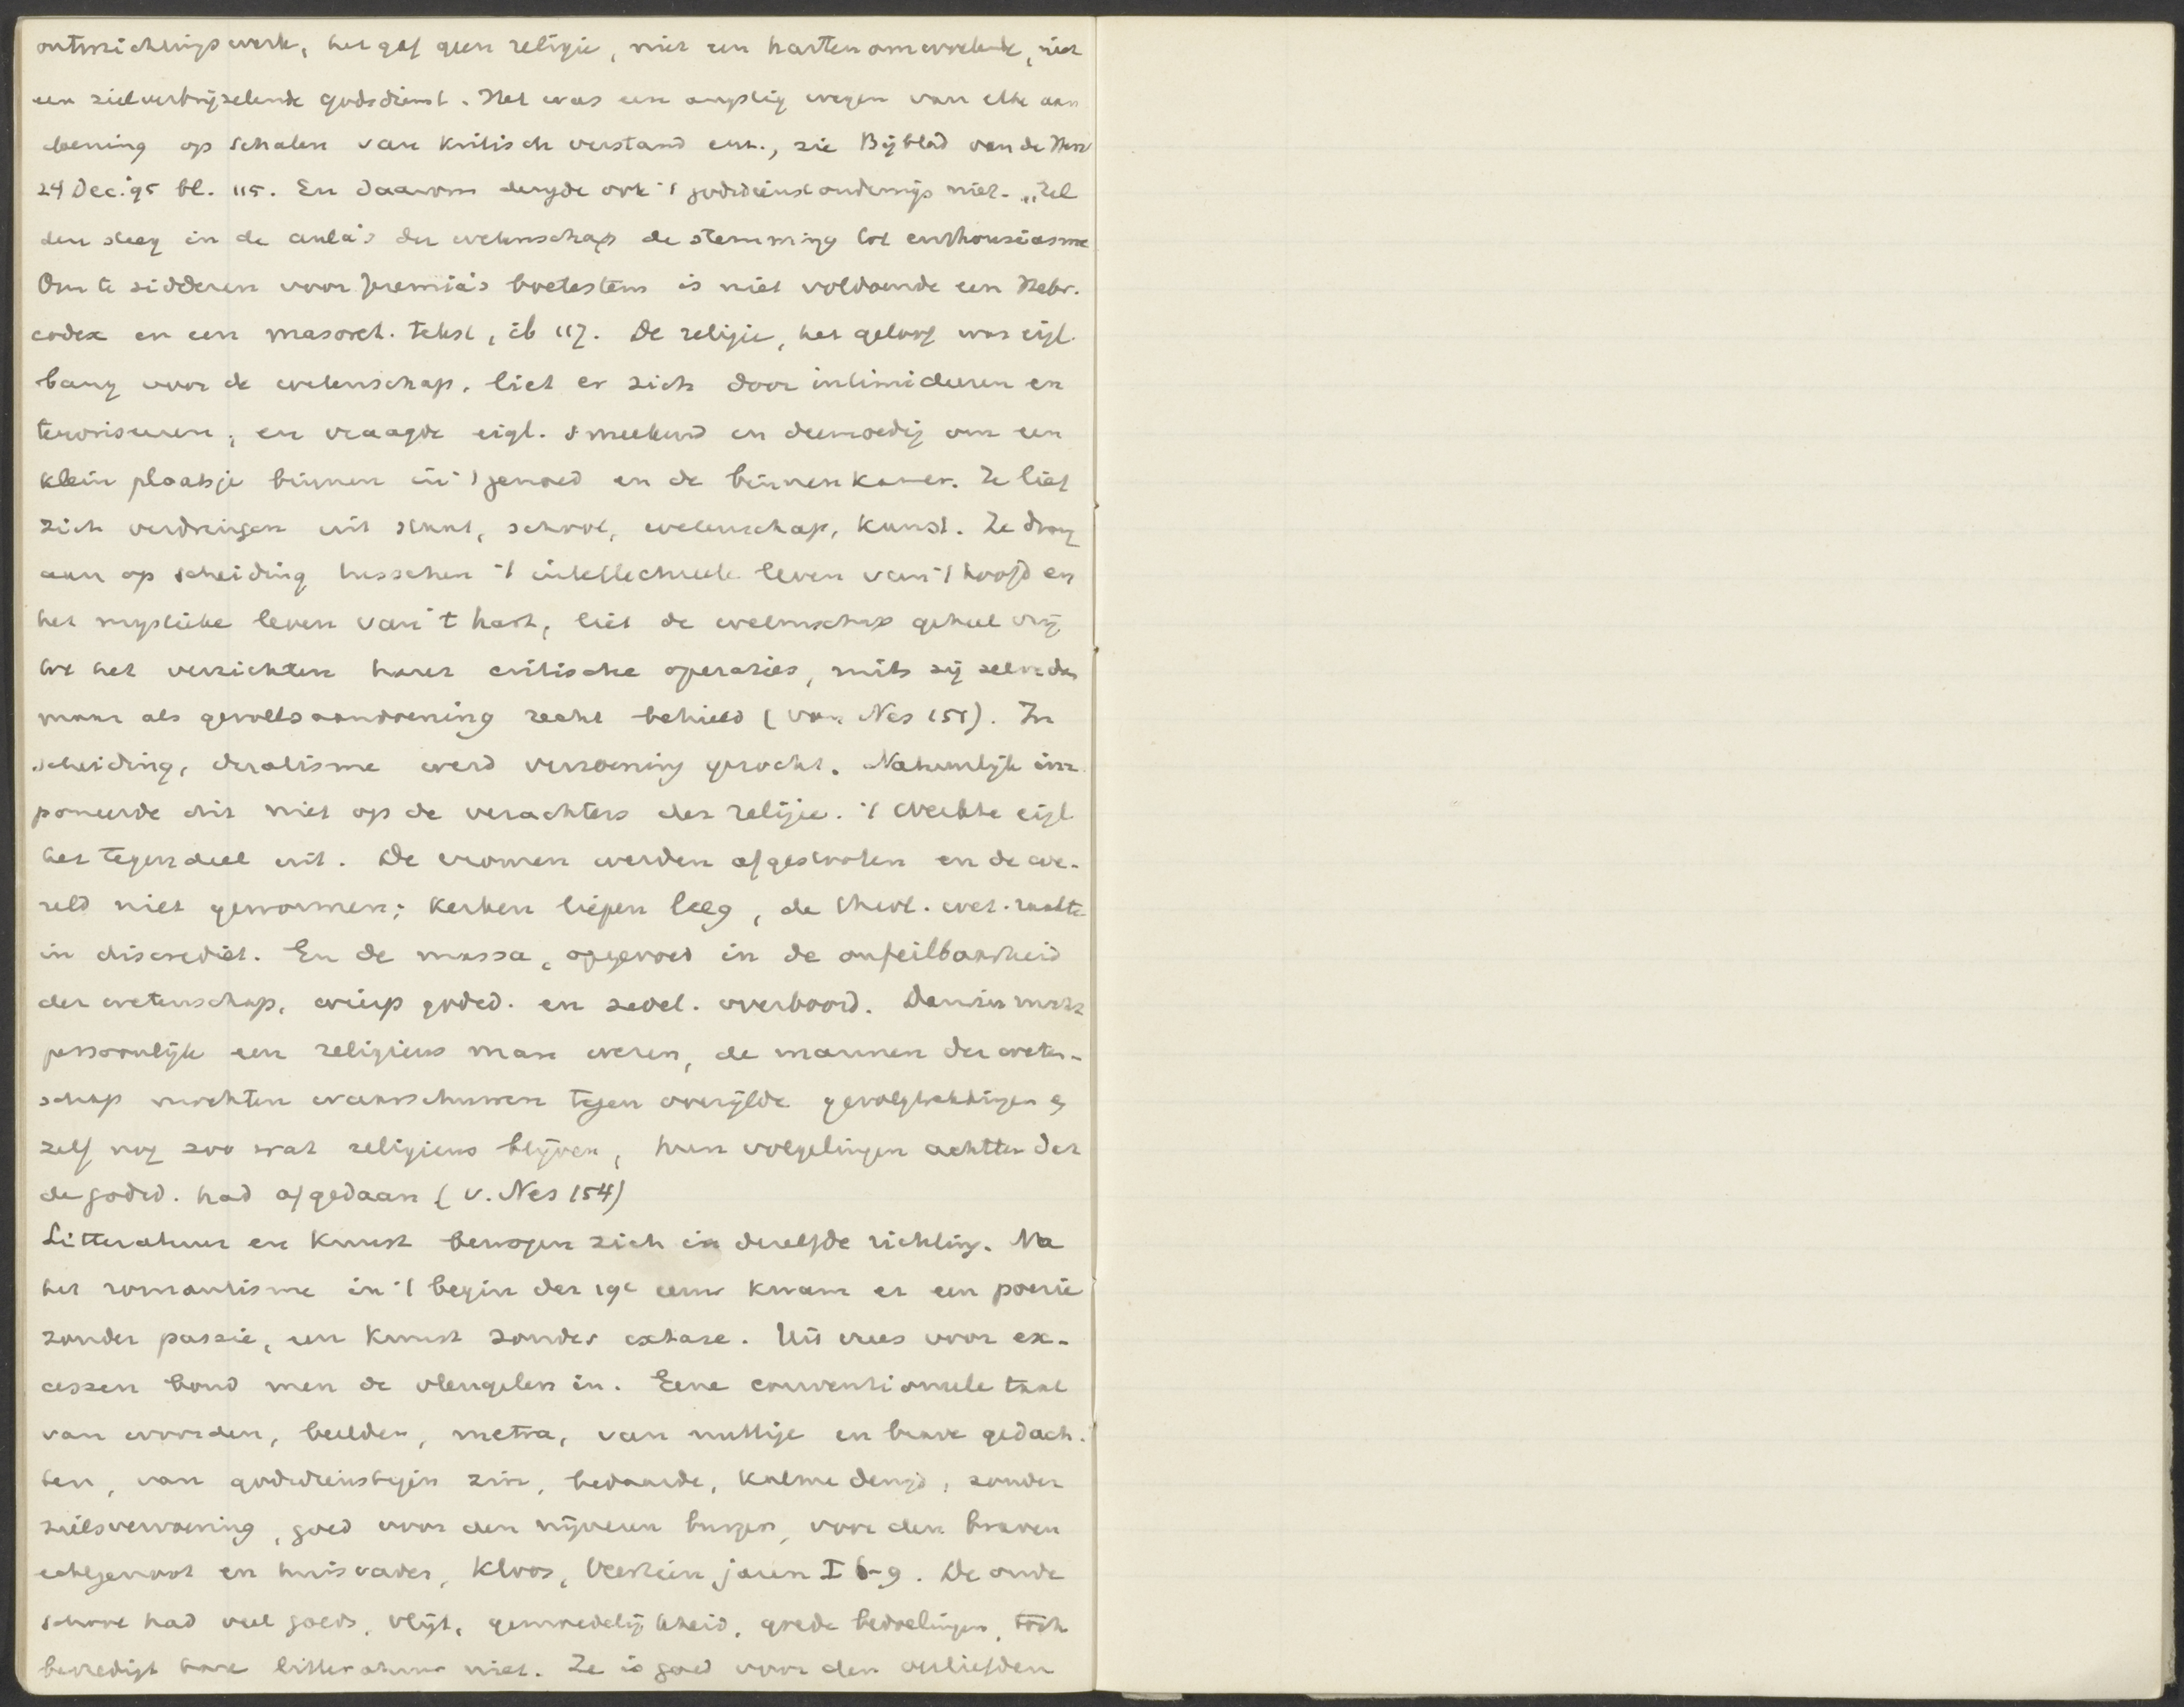 ontnuchteringswerk, het gaf geen religie, niet een harten omwoelende, niet
een zielverbrijzelende godsdienst. Het was een angstig wegen van elke aan
doening op schalen van kritisch verstand enz., zie Bijblad van de Herv
24 Dec. '95 bl. 115. En daarom deugde ook 't godsdienstonderwijs niet. „Zel
den steeg in de aula's der wetenschap de stemming tot enthousiasme
Om te sidderen voor Jeremia's boetestem is niet voldoende een Hebr.
codex en een masoret. tekst, ib 117. De religie, het geloof was eigl.
bang voor de wetenschap, liet er zich door intimideeren en
terroriseeren, en vraagde eigl. smeekend en deemoedig om een
klein plaatsje binnen in 't gemoed en de binnenkamer. Ze liet
zich verdringen uit staat, school, wetenschap, kunst. Ze drong
aan op scheiding tusschen 't intellectueele leven van 't hoofd en
het mystieke leven van 't hart, liet de wetenschap geheel vrij
tot het verrichten harer critische operaties, mits zij zelve dan
maar als gevoelsaandoening recht behield (van Nes 151). In
scheiding, dualisme werd verzoening gezocht. Natuurlijk im
poneerde dit niet op de verachters der religie. 't Werkte eigl
het tegendeel uit. De vromen werden afgestooten en de we-
reld niet gewonnen; kerken liepen leeg, de theol. wet. raakte
in discrediet. En de massa, opgevoed in de onfeilbaarheid
der wetenschap, wierp godsd. en zedel. overboord. Darwin mocht
persoonlijk een religieus man wezen, de mannen der weten-
schap mochten waarschuwen tegen overijlde gevolgtrekkingen en
zelf nog zoo wat religieus blijven, hun volgelingen achtten dat
de godsd. had afgedaan (v. Nes 154)
Litteratuur en kunst bewogen zich in dezelfde richting. Na
het romantisme in 't begin der 19e eeuw kwam er een poezie
zonder passie, een kunst zonder extase. Uit vrees voor ex-
cessen bond men de vleugelen in. Eene conventioneele taal
van woorden, beelden, metra, van nuttige en brave gedach-
ten, van godsdienstigen zin, bedaarde, kalme deugd, zonder
zielsvervoering, goed voor den nijveren burger, voor den braven
echtgenoot en huisvader, Kloos, Veertien jaren I 6-9. De oude
school had veel goeds, vlijt, gemoedelijkheid, goede bedoelingen, toch
bevredigt hare litteratuur niet. Ze is goed voor den verliefden